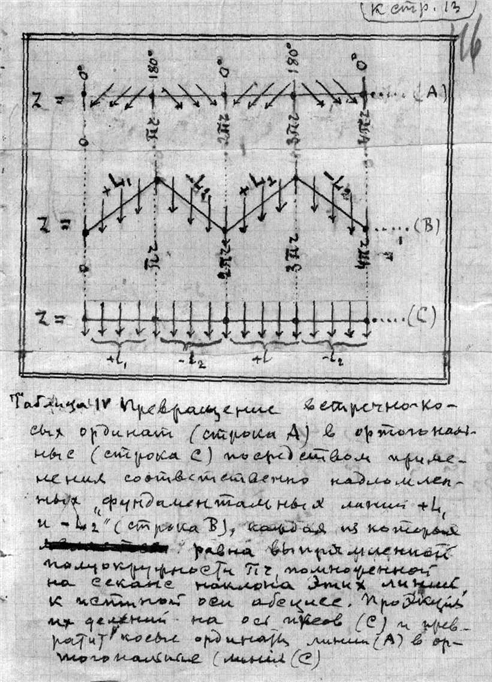 к стр. 13
16
0° 180° 0° 180° 0°
Z = (A)
0 πr 2πr 3πr 4πr
+L₁ -L₂ +L₁ -L₂
Z = (B)
0 πr 2πr 3πr 4πr
Z = (C)
+L₁ -L₂ +L -L₂
Таблица IV Превращение встречно-ко-
сых ординат (строка А) в ортогональ-
ные (строка С) посредством приме-
нения соответственно надломлен-
ных „фундаментальных линий +L₁
и -L₂" (строка В), каждая из которых
равна выпрямленной
полуокружности πr помноженной
на секанс наклона этих линий,
к истинной оси абсцисс. Проэкция
их делений на ось иксов (С) и прев-
ратит косые ординаты линии (А) в ор-
тогональные (линия (С)